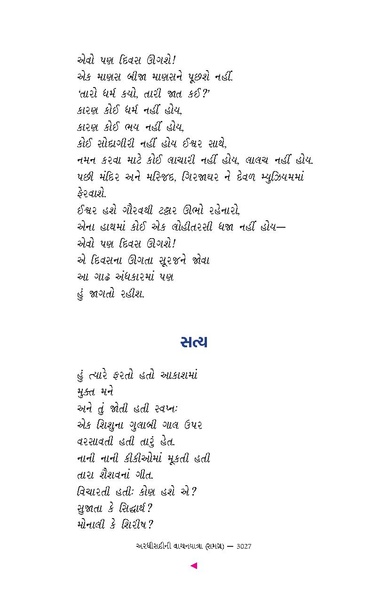 એવો પણ દિવસ ઊગશે!
એક માણસ બીજા માણસને પૂછશે નહીં.
‘તારો ધર્મ કયો, તારી જાત કઈ?’
કારણ કોઈ ધર્મ નહીં હોય,
કારણ કોઈ ભય નહીં હોય,
કોઈ સોદાગીરી નહીં હોય ઈશ્વર સાથે,
નમન કરવા માટે કોઈ લાચારી નહીં હોય, લાલચ નહીં હોય.
પછી મંદિર અને મસ્જિદ, ગિરજાઘર ને દેવળ મ્યુઝિયમમાં
ફેરવાશે.
ઈશ્વર હશે ગૌરવથી ટટ્ટાર ઊભો રહેનારો,
એના હાથમાં કોઈ એક લોહીતરસી ધજા નહીં હોય—
એવો પણ દિવસ ઊગશે!
એ દિવસના ઊગતા સૂરજને જોવા
આ ગાઢ અંધકારમાં પણ
હું જાગતો રહીશ.
સત્ય
હું ત્યારે ફરતો હતો આકાશમાં
મુક્ત મને
અને તું જોતી હતી સ્વપ્નઃ
એક શિશુના ગુલાબી ગાલ ઉપર
વરસાવતી હતી તારું હેત.
નાની નાની કીકીઓમાં મૂકતી હતી
તારા શૈશવનાં ગીત.
વિચારતી હતીઃ કોણ હશે એ?
સુજાતા કે સિદ્ધાર્થ?
મોનાલી કે શિરીષ?
અરધીસદીની વાચનયાત્રા (સમગ્ર) — 3027